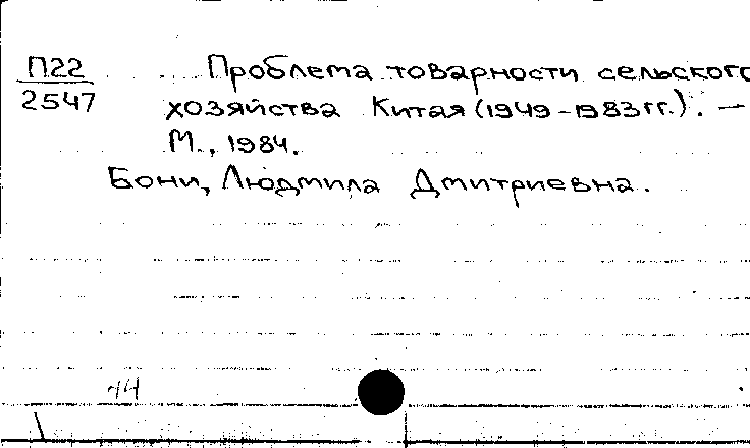 П22 Проблема товарности сельского
2547 хозяйства Китая (1949-1983гг.). —
М., 1984.
Бони, Людмила Дмитриевна.
44